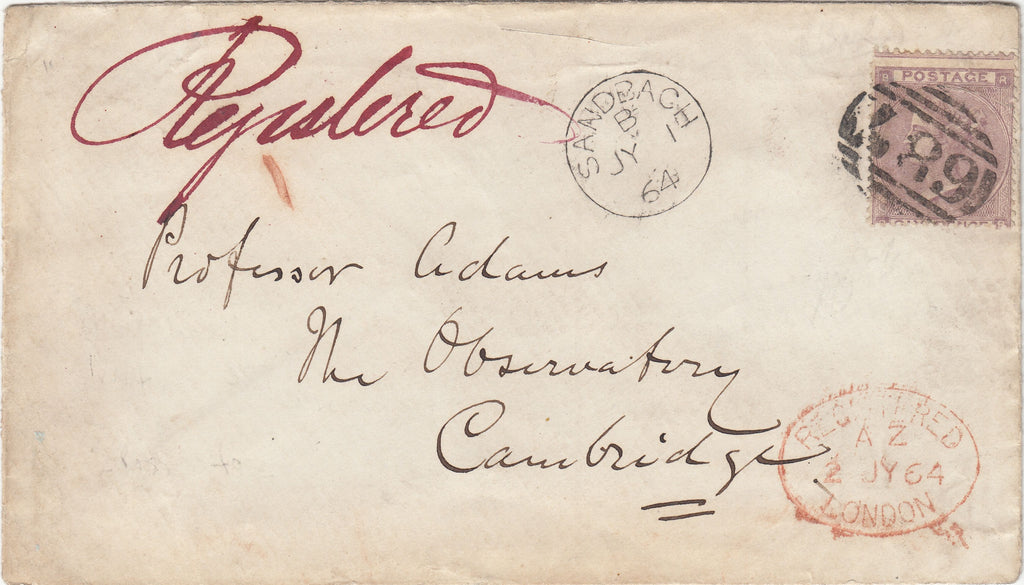 Registered
SANDBACH
B
JY 1
64
B POSTAGE R
89
Professor Adams
The Observatory
Cambridge
REGISTERED
A Z
2 JY 64
LONDON